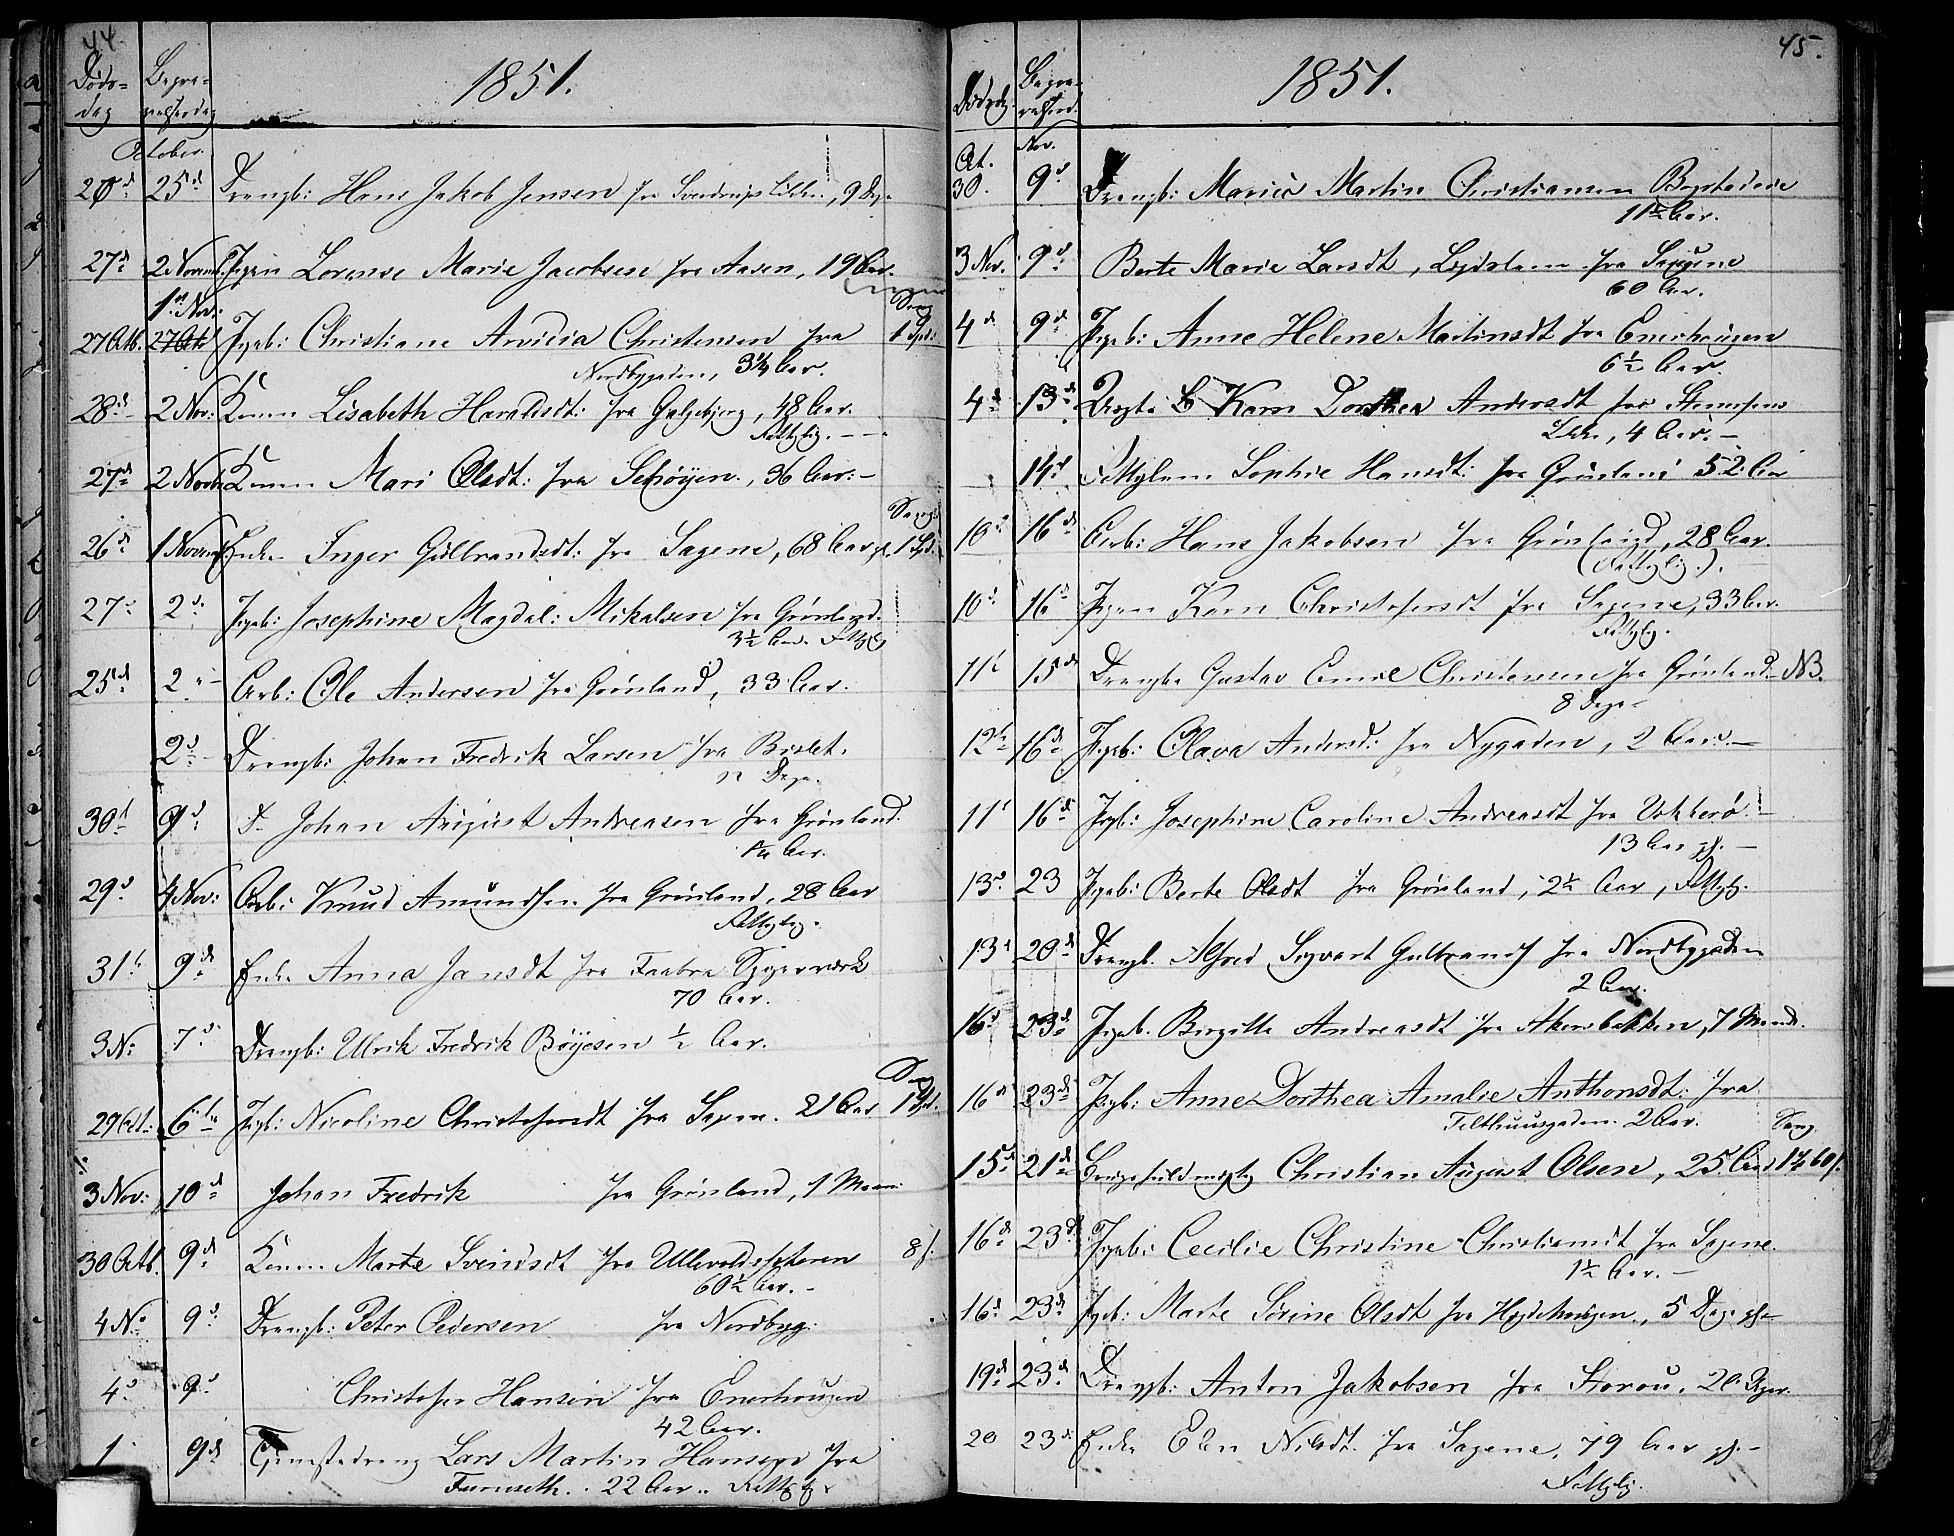 44.
Døds-
dag
Begra-
velsesdag
1851.
October
20d 25d Drengb: Hans Jakob Jensen fra Sverdrups Løkke, 9 Dg.
27d 2 Novemb. Pigen Lovense Marie Jacobsen fra Aasen, 19 Aar.
1n Nov: Sang
27 Octb. 27 Oct Pigeb: Christiane Arvicia Christensen fra 1 Spd:
Nordbygaden, 3¼ Aar.
28d 2 Nov: Konen Lisabeth Haraldsdt: fra Galgebjerg, 48 Aar.
Fattiglig. - -
27d 2 Novb: Konen Mari Olsdt: fra Schøyen, 36 Aar. -
Sang
26d 1 Novemb Enke Inger Gulbrandsdt: fra Sagene, 68 Aar gl. 1 Spd.
27d 2d Pigeb: Josephine Magdal: Mikalsen fra Grønland.
3½ Aar. Fattiglig
25d 2 - Arb: Ole Andersen fra Grønland, 33 Aar.
2d Drengb: Johan Fredrik Larsen fra Bislet.
Dage.
30d 9d D. Johan August Andreasen fra Grønland.
Aar.
29d 4 Nov: Arb: Knud Amundsen fra Grønland, 28 Aar
Fattiglig.
31t 9d Enke Anna Jansdt fra Faabro Spigerværk
70 Aar.
3 N: 7d Drengb: Ulrik Fredrik Bøyesen ½ Aar.
Sang
29 Oct: 6te Pigb: Nicoline Christophersdt fra Sagene. 21 Aar 1 Spd.
3 Nov: 10d Johan Fredrik fra Grønland, 1 Maan:
30 Octb. 9d Konen Marte Svendsdt fra Ullevoldsæteren 8 f.
60½ Aar. -
4 No 9d Drengb: Peter Pedersen fra Nordbyg:
4d 9d Christofer Hansen fra Enerhougen
42 Aar.
1 9d Tjenestedreng Lars Martin Hansen fra
Furuseth. 22 Aar. Fattiglig.
45.
Dødsdg.
Begra-
velsesd.
1851.
Oct. Nov.
30. 9d Drengb: Marius Martin Christiansen
11½ Aar.
3 Nov. 9d Berte Marie Larsdt, Lægdslem fra Sagene
60 Aar.
4d 9d Pigeb: Anne Helene Martinsdt fra Enerhougen
6½ Aar.
4d 13d Uægte B Karn Dorthea Andersdt fra Stensens
Løkke, 4 Aar. -
14d Fattiglem Sophie Hansdt: fra Grønland 52 Aar
10d 16d Arb: Hans Jakobsen fra Grønland, 28 Aar.
(Fattiglig.).
10d 16d Pigen Karn Christophersdt fra Sagene, 33 Aar.
Fattiglig.
11t 15d Drengb: Gustav Emil Christensen fra Grønland NB.
8 Dage -
12te 16d Pigeb: Olava Andersd: fra Nygaden, 2 Aar. -
11t 16d Pigb: Josephine Caroline Andreasdt fra Vækkerø. -
13 Aar gl. -
13d 23 Pigeb: Berte Olsdt fra Grønland, 2½ Aar, Fattigl.
13d 20d Drengb. Alfred Sigvart Gulbrands fra Nordbygaden
2 Aar.
16d 23d Pigeb. Birgitte Andreasdt fra Akersbakken, 7 Maand.
16d 23d Pigeb: Anne Dorthea Amalie Anthonsdt: fra
Telthuusgaden. 2 Aar. Sang.
15d 21d Christian August Olsen, 25 Aar
16d 23d Pigeb: Cecilie Christine Christiansdt fra Sagene.
1½ Aar. -
16d 23d Pigeb: Marte Sirine Olsdt fra Hægdehaugen, 5 Dage gl. -
19d 23d Drengb: Anton Jakobsen fra Storou, 20 Dage.
20 23d Enke Elen Nilsdt. fra Sagene, 79 Aar gl. -
Fattiglig.